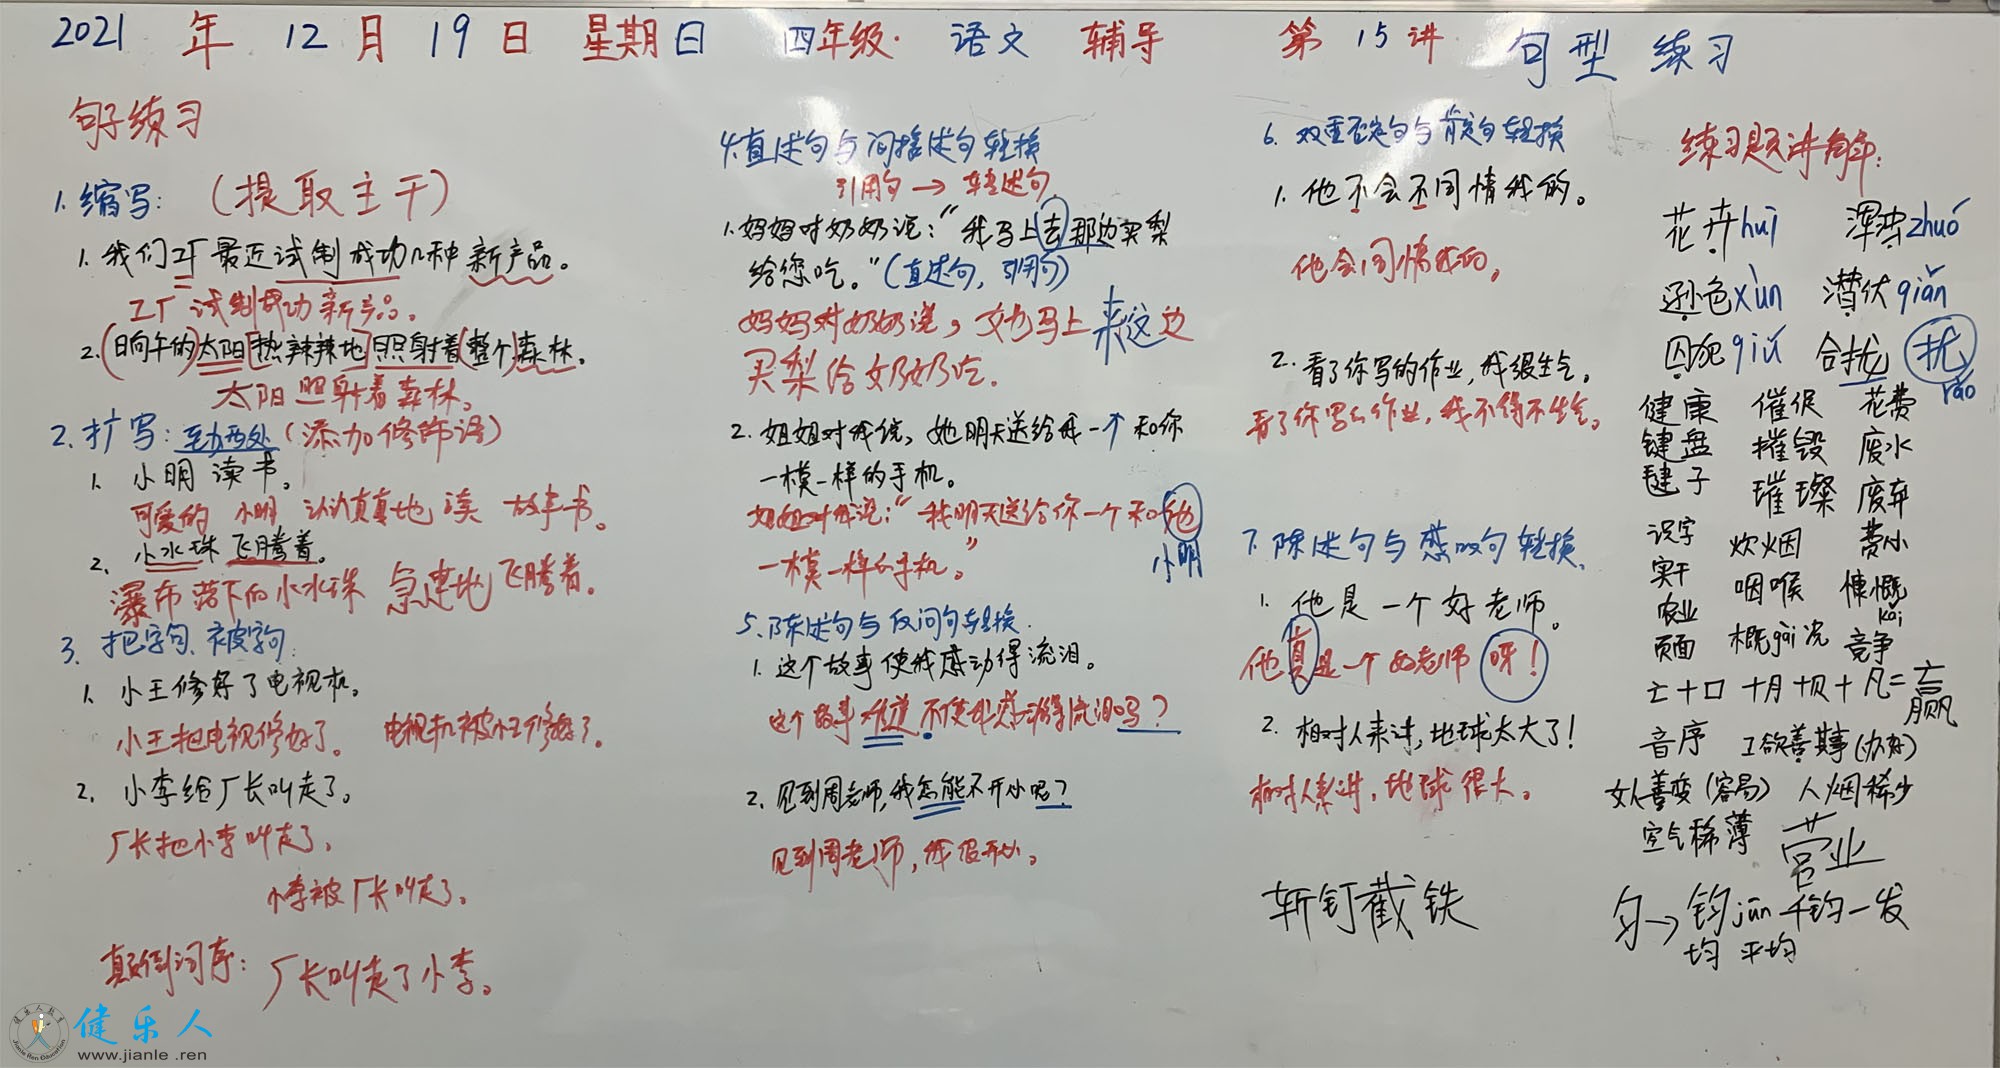 2021 年 12 月 19 日 星期日 四年级. 语文 辅导 第 15 讲 句型 练习
句子练习
1. 缩写: (提取主干)
1. 我们工厂最近试制成功几种新产品。
工厂试制成功新产品。
2. (日向午的)太阳[热辣辣地]照射着(整个)森林。
太阳照射着森林。
2. 扩写: (添加修饰语)
1. 小明读书。
可爱的小明认认真真地读故事书。
2. 小水珠飞腾着。
瀑布落下的小水珠急速地飞腾着。
3. 把字句、被字句:
1. 小王修好了电视机。
小王把电视修好了。 电视机被小王修好了。
2. 小李给厂长叫走了。
厂长把小李叫走了。
小李被厂长叫走了。
颠倒词序: 厂长叫走了小李。
4. 直述句与间接述句转换
引用句 → 转述句
1. 妈妈对奶奶说:“我马上去那边买梨
给您吃。”(直述句, 引用句)
妈妈对奶奶说, 她马上来这边
买梨给奶奶吃.
2. 姐姐对我说, 她明天送给我一个和你
一模一样的手机。
姐姐对我说:“我明天送给你一个和他
小明
一模一样的手机。”
5. 陈述句与反问句转换.
1. 这个故事使我感动得流泪。
这个故事难道不使我感动得流泪吗?
2. 见到周老师, 我怎能不开心呢?
见到周老师, 我很开心。
6. 双重否定句与肯定句转换
1. 他不会不同情我的。
他会同情我的。
2. 看了你写的作业, 我很生气。
看了你写的作业, 我不得不生气。
7. 陈述句与感叹句转换.
1. 他是一个好老师。
他真是一个好老师呀!
2. 相对人来讲, 地球太大了!
相对人来讲, 地球很大。
斩钉截铁
练习题讲解:
花卉huì 浑浊zhuó
逊色xùn 潜伏qiǎn
囚犯qiú 合拢 扰 rǎo
健康 催促 花费
键盘 摧毁 废水
毽子 璀璨 废弃
识字 炊烟 费心
实干 咽喉 慷慨kǎi
农业
页面 概gài况 竞争
亡十口十月十贝十凡=赢
音序 工欲善其事(办好)
女人善变(容易) 人烟稀少
空气稀薄 营业
匀→钧jūn 千钧一发
均 平均
健乐人
www.jianle .ren